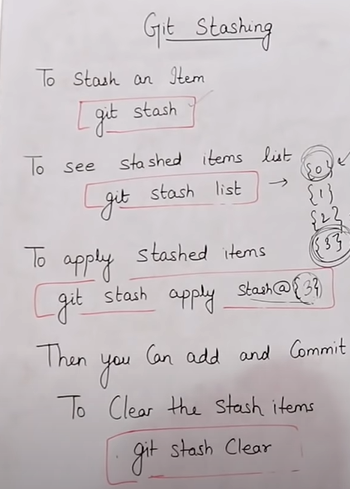 Git Stashing
To Stash an Item
git stash
To see stashed items list
git stash list → {0}
{1}
{2}
{3}
To apply stashed items
git stash apply stash@{3}
Then you Can add and Commit
To Clear the Stash items
git stash Clear